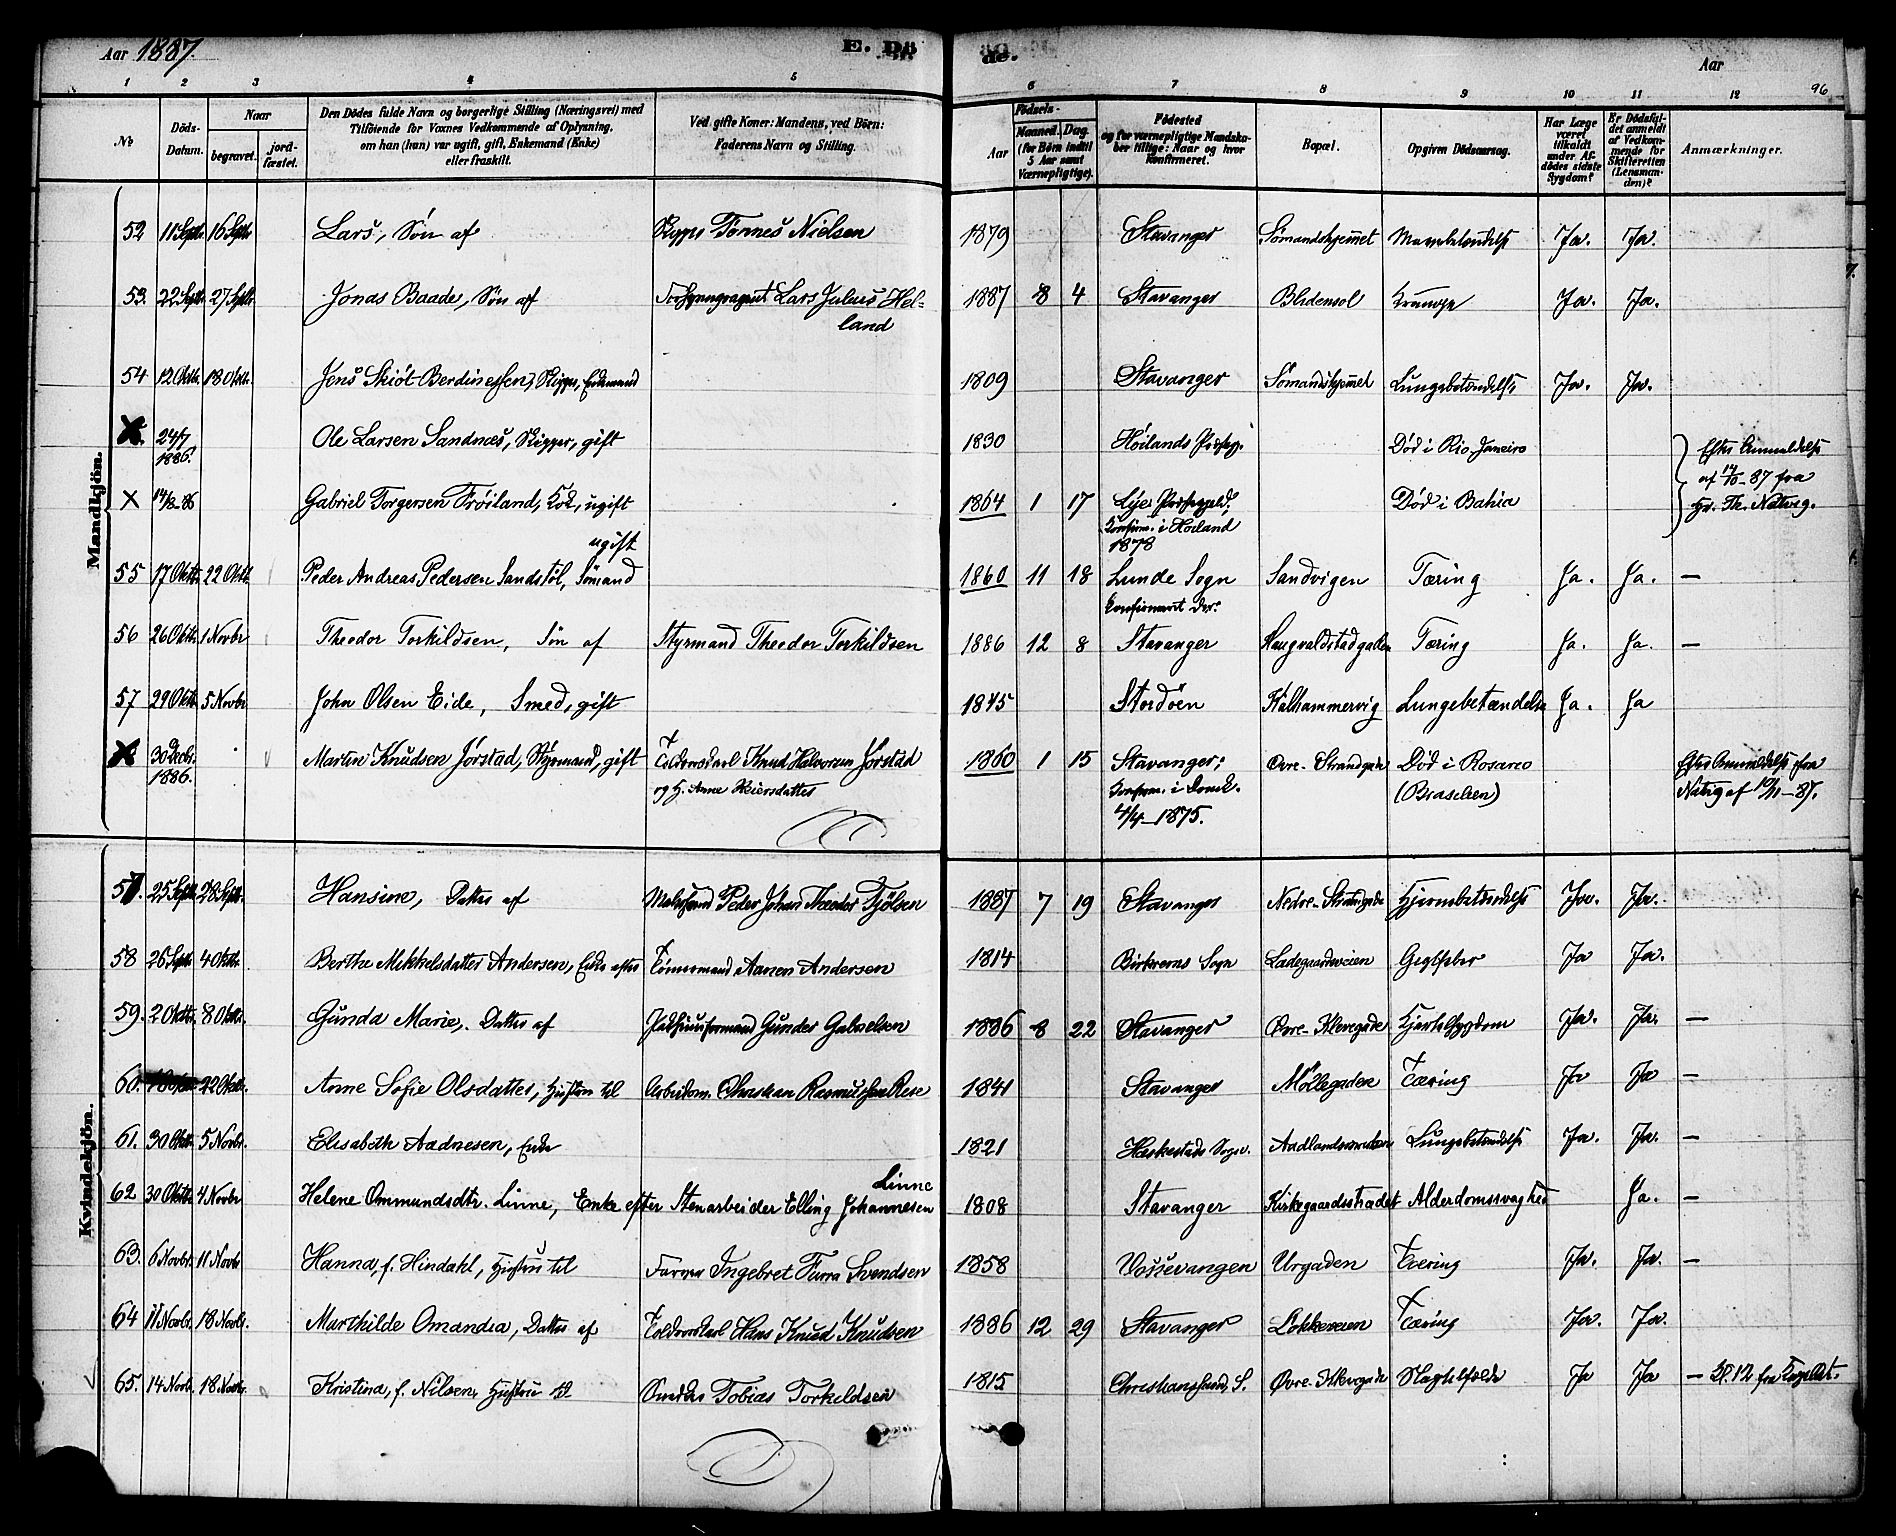 Aar 1887. E. Dö de. Aar
1 2 3 4 5 6 7 8 9 10 11 12 96
№ Döds-Datum. Naar begravet. jord-fæstet. Den Dödes fulde Navn og borgerlige Stilling (Næringsvei) med Tilföiende for Voxnes Vedkommende af Oplysning, om han (hun) var ugift, gift, Enkemand (Enke) eller fraskilt. Ved gifte Koner: Mandens, ved Börn: Faderens Navn og Stilling. Födsels- Aar Maaned. Dag. (for Börn indtil 5 Aar samt Værnepligtige). Födested og for værnepligtige Mandska-ber tillige: Naar og hvor konfirmeret. Bopæl. Opgiven Dödsaarsag. Har Læge været tilkaldt under Af-dödes sidste Sygdom? Er Dödsfal-det anmeldt af Vedkom-mende for Skifteretten (Lensman-den)? Anmærkninger.
Mandkjön.
52 11 Septr. 16 Septr. Lars, Søn af Skipper Tørnes Nielsen 1879 Stavanger Sømandshjemmet Mavebetændelse Ja. Ja.
53. 22 Septr. 27 Septr. Jonas Baade, Søn af Forsyningsagent Lars Julius Hel- 1887 8 4 Stavanger Blidensol Krampe Ja. Ja.
land
54 12 Oktbr. 18 Oktbr. Jens Skiöt Berdinessen, Skipper, Enkemand 1809 Stavanger Sømandshjemmet Lungebetændelse Ja. Ja.
24/7 Ole Larsen Sandnæs, Skipper, gift 1830 Høilands Præstegj. Død i Rio Janeiro Efter Anmeldelse
1886. af 14/10-87 fra
X 14/8-86 Gabriel Torgersen Frøiland, Kok, ugift 1864 1 17 Lye Præstegjeld, Død i Bahia Hr. Th. Natvig.
Konfirm. i Høiland
1878
ugift
55 17 Oktbr. 22 Oktbr. Peder Andreas Pedersen Sandstøl, Sømand 1860 11 18 Lunde Sogn Sandvigen Tæring Ja. Ja. —
Konfirmeret der.
56 26 Oktbr. 1 Novbr Theodor Torkildsen, Søn af Styrmand Theodor Torkildsen 1886 12 8 Stavanger Haugvaldstadgaden Tæring Ja. Ja. —
57 29 Oktbr. 5 Novbr John Olsen Eide, Smed, gift 1845 Stordøen Kalhammervig Lungebetændelse Ja. Ja
30 Decbr. Martin Knudsen Jørstad, Styrmand, gift † Toldrorskarl Knud Halvorsen Jørstad 1860 1 15 Stavanger; Øvre-Strandgade Død i Rosario Efter Anmeldelse fra
1886. og H. Anne Reiersdatter Konfirm. i Domk. (Brasilien) Natvig af 10/11-87.
4/4-1875.
Kvindekjön.
57. 25 Septr. 28 Septr. Hansine, Datter af Peder Johan Theodor Fjølsen 1887 7 19 Stavanger Nedre-Strandgade Hjernebetændelse Ja. Ja.
58 26 Septr. 4 Oktbr. Berthe Mikkelsdatter Andersen, Enke efter Tømermand Aanen Andersen 1814 Birkrems Sogn Ladegaardsveien Gigtfeber Ja Ja.
59. 2 Oktbr. 8 Oktbr. Gunda Marie, Datter af Gunder Gabrielsen 1886 8 22 Stavanger Øvre-Klevegade Hjertesygdom Ja. Ja. —
60. 22 Oktbr. Anne Sofie Olsdatter, Hustru til Arbeidsm. Christian Rasmussen Rese 1841 Stavanger Møllegaden Tæring Ja Ja —
61. 30 Oktbr. 5 Novbr. Elisabeth Aadnesen, Enke 1821 Heskestads Sogn. Lungebetændelse Ja. Ja. —
Linne
62 30 Oktbr. 4 Novbr Helene Ommundsdtr. Linne, Enke efter Stenarbeider Elling Johannesen 1808 Stavanger Kirkegaardsstrædet Alderdomssvaghed Ja. —
63. 6 Novbr. 11 Novbr Hanna, f. Hindahl, Hustru til Farver Ingebret Furra Svendsen 1858 Vossevangen Urgaden Tæring Ja. Ja. —
64 11 Novbr. 18 Novbr. Marthilde Omandia, Datter af Toldrorskarl Hans Knud Knudsen 1886 12 29 Stavanger Løkkeveien Tæring Ja. Ja.
65. 14 Novb. 18 Novbr. Kristina, f. Nilsen, Hustru til Snedker Tobias Torkildsen 1815 Christianssand, S. Øvre-Klevegade Ja Ja —